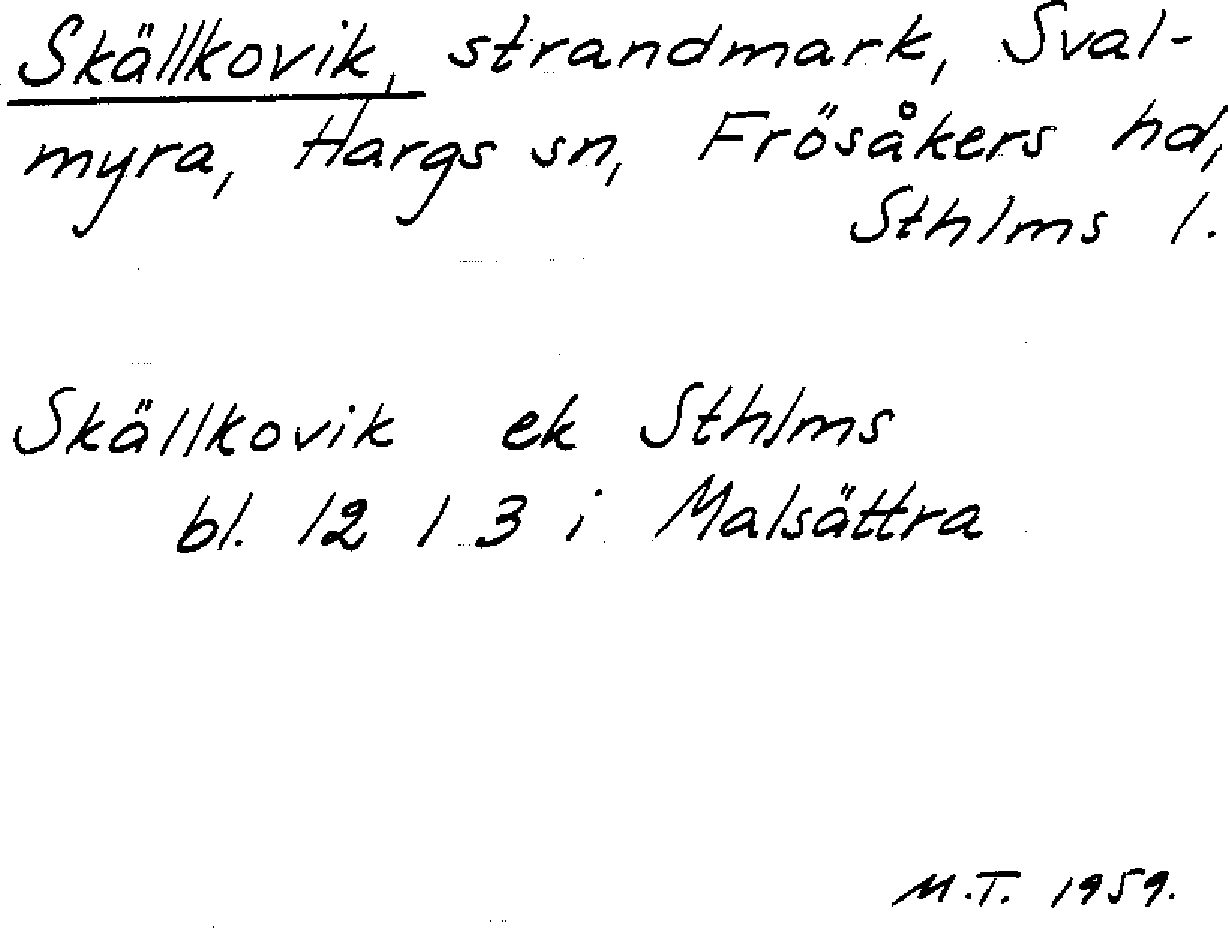 Skällkovik, strandmark, Sval-
myra, Hargs sn, Frösåkers hd,
Sthlms l.
Skällkovik ek Sthlms
bl. 12 I 3 i Malsättra
M.T. 1959.